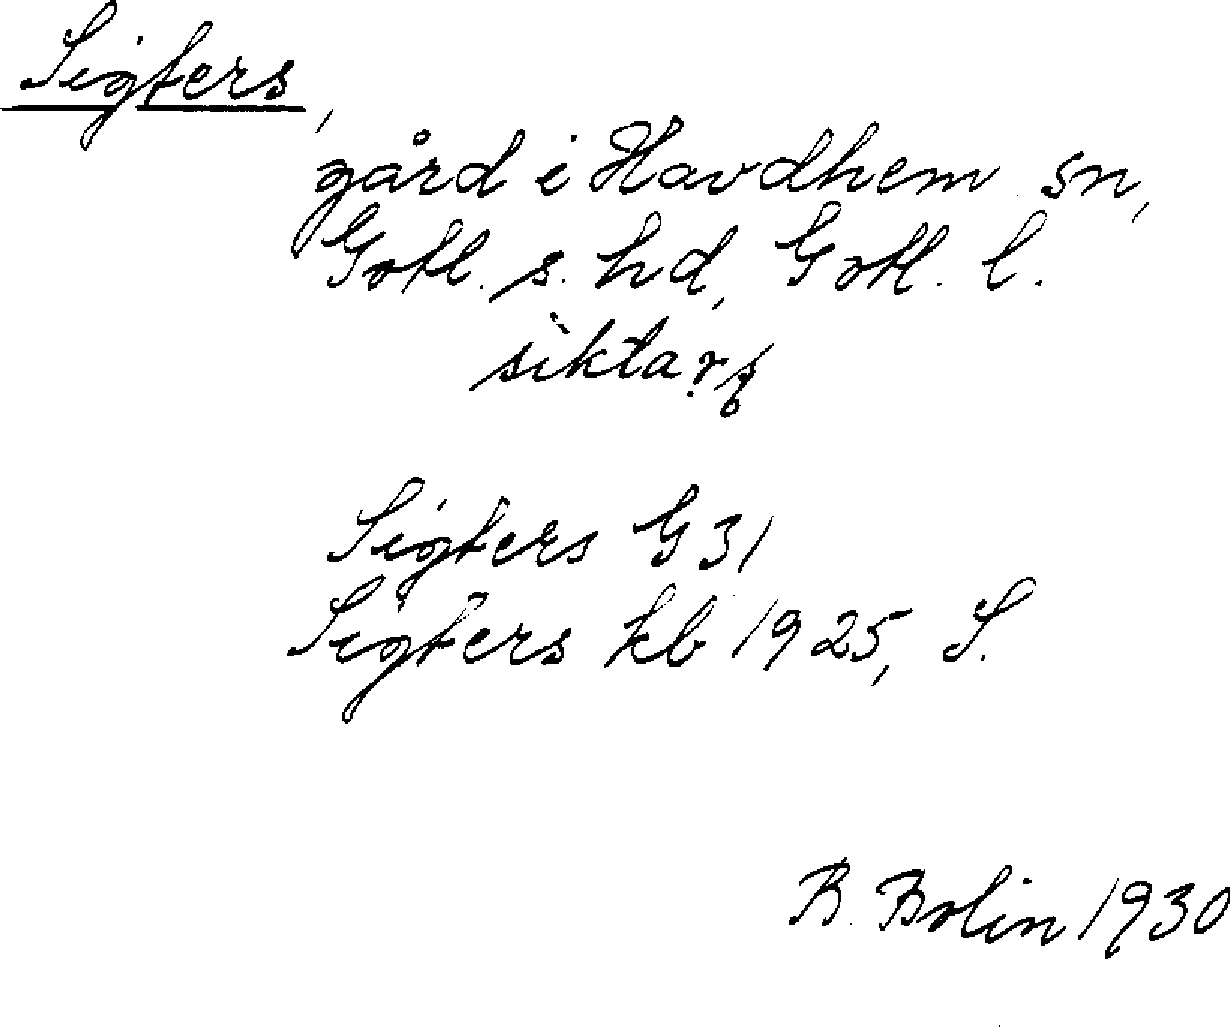 Sigters,
gård i Havdhem sn,
Gotl. s. hd, Gotl. l.
sìktaṛʂ
Sigters G 31
Sigters kb 1925, S.
B. Bolin 1930